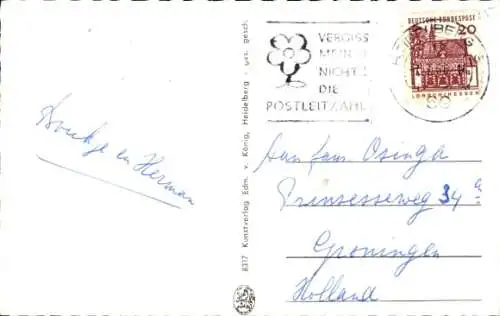 DEUTSCHE BUNDESPOST
20
LORSCH/HESSEN
VERGISS
MEIN
NICHT
DIE
POSTLEITZAHL
8317 Kunstverlag Edm. v. König, Heidelberg - ges. gesch.
en Herman
Aan fam Osinga
Prinsesseweg 34 a
Groningen
Holland